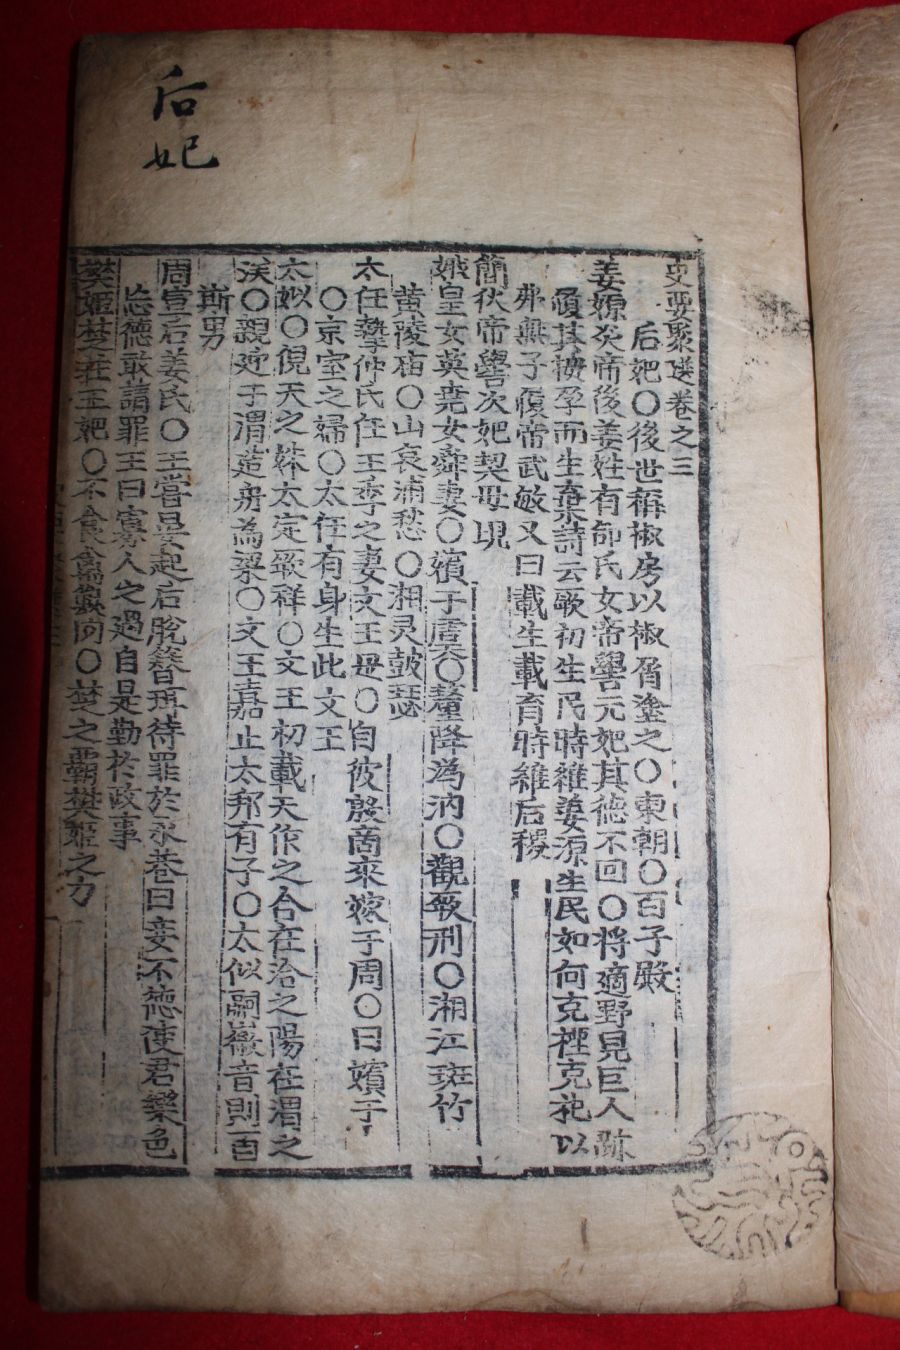 后妃
史要聚選卷之三
后妃○後世稱椒房以椒屑塗之○東朝○百子殿
姜嫄炎帝後姜姓有邰氏女帝嚳元妃其德不回○將適野見巨人跡
履其拇孕而生棄詩云歌初生民時維姜源生民如何克禋克祀以
弗無子履帝武敏又曰載生載育時維后稷
簡狄帝嚳次妃契母
娥皇女英堯女舜妻○嬪于虞○釐降為汭○觀厥刑○湘江斑竹
黃陵庙○山哀浦愁○湘灵鼓瑟
太任摯仲氏任王季之妻文王母○自彼殷商來嫁于周○曰嬪于
○京室之婦○太任有身生此文王
太姒○俔天之妹太定厥祥○文王初載天作之合在洽之陽在渭之
涘○親迎于渭造舟為梁○文王嘉止太邦有子○太似嗣徽音則百
斯男
周宣后姜氏○王嘗晏起后脫簪珥待罪於永巷曰妾不德使君樂色
忘德敢請罪王曰寡人之過自是勤於政事
樊姬楚莊王妃○不食禽獸肉○楚之霸樊姬之力